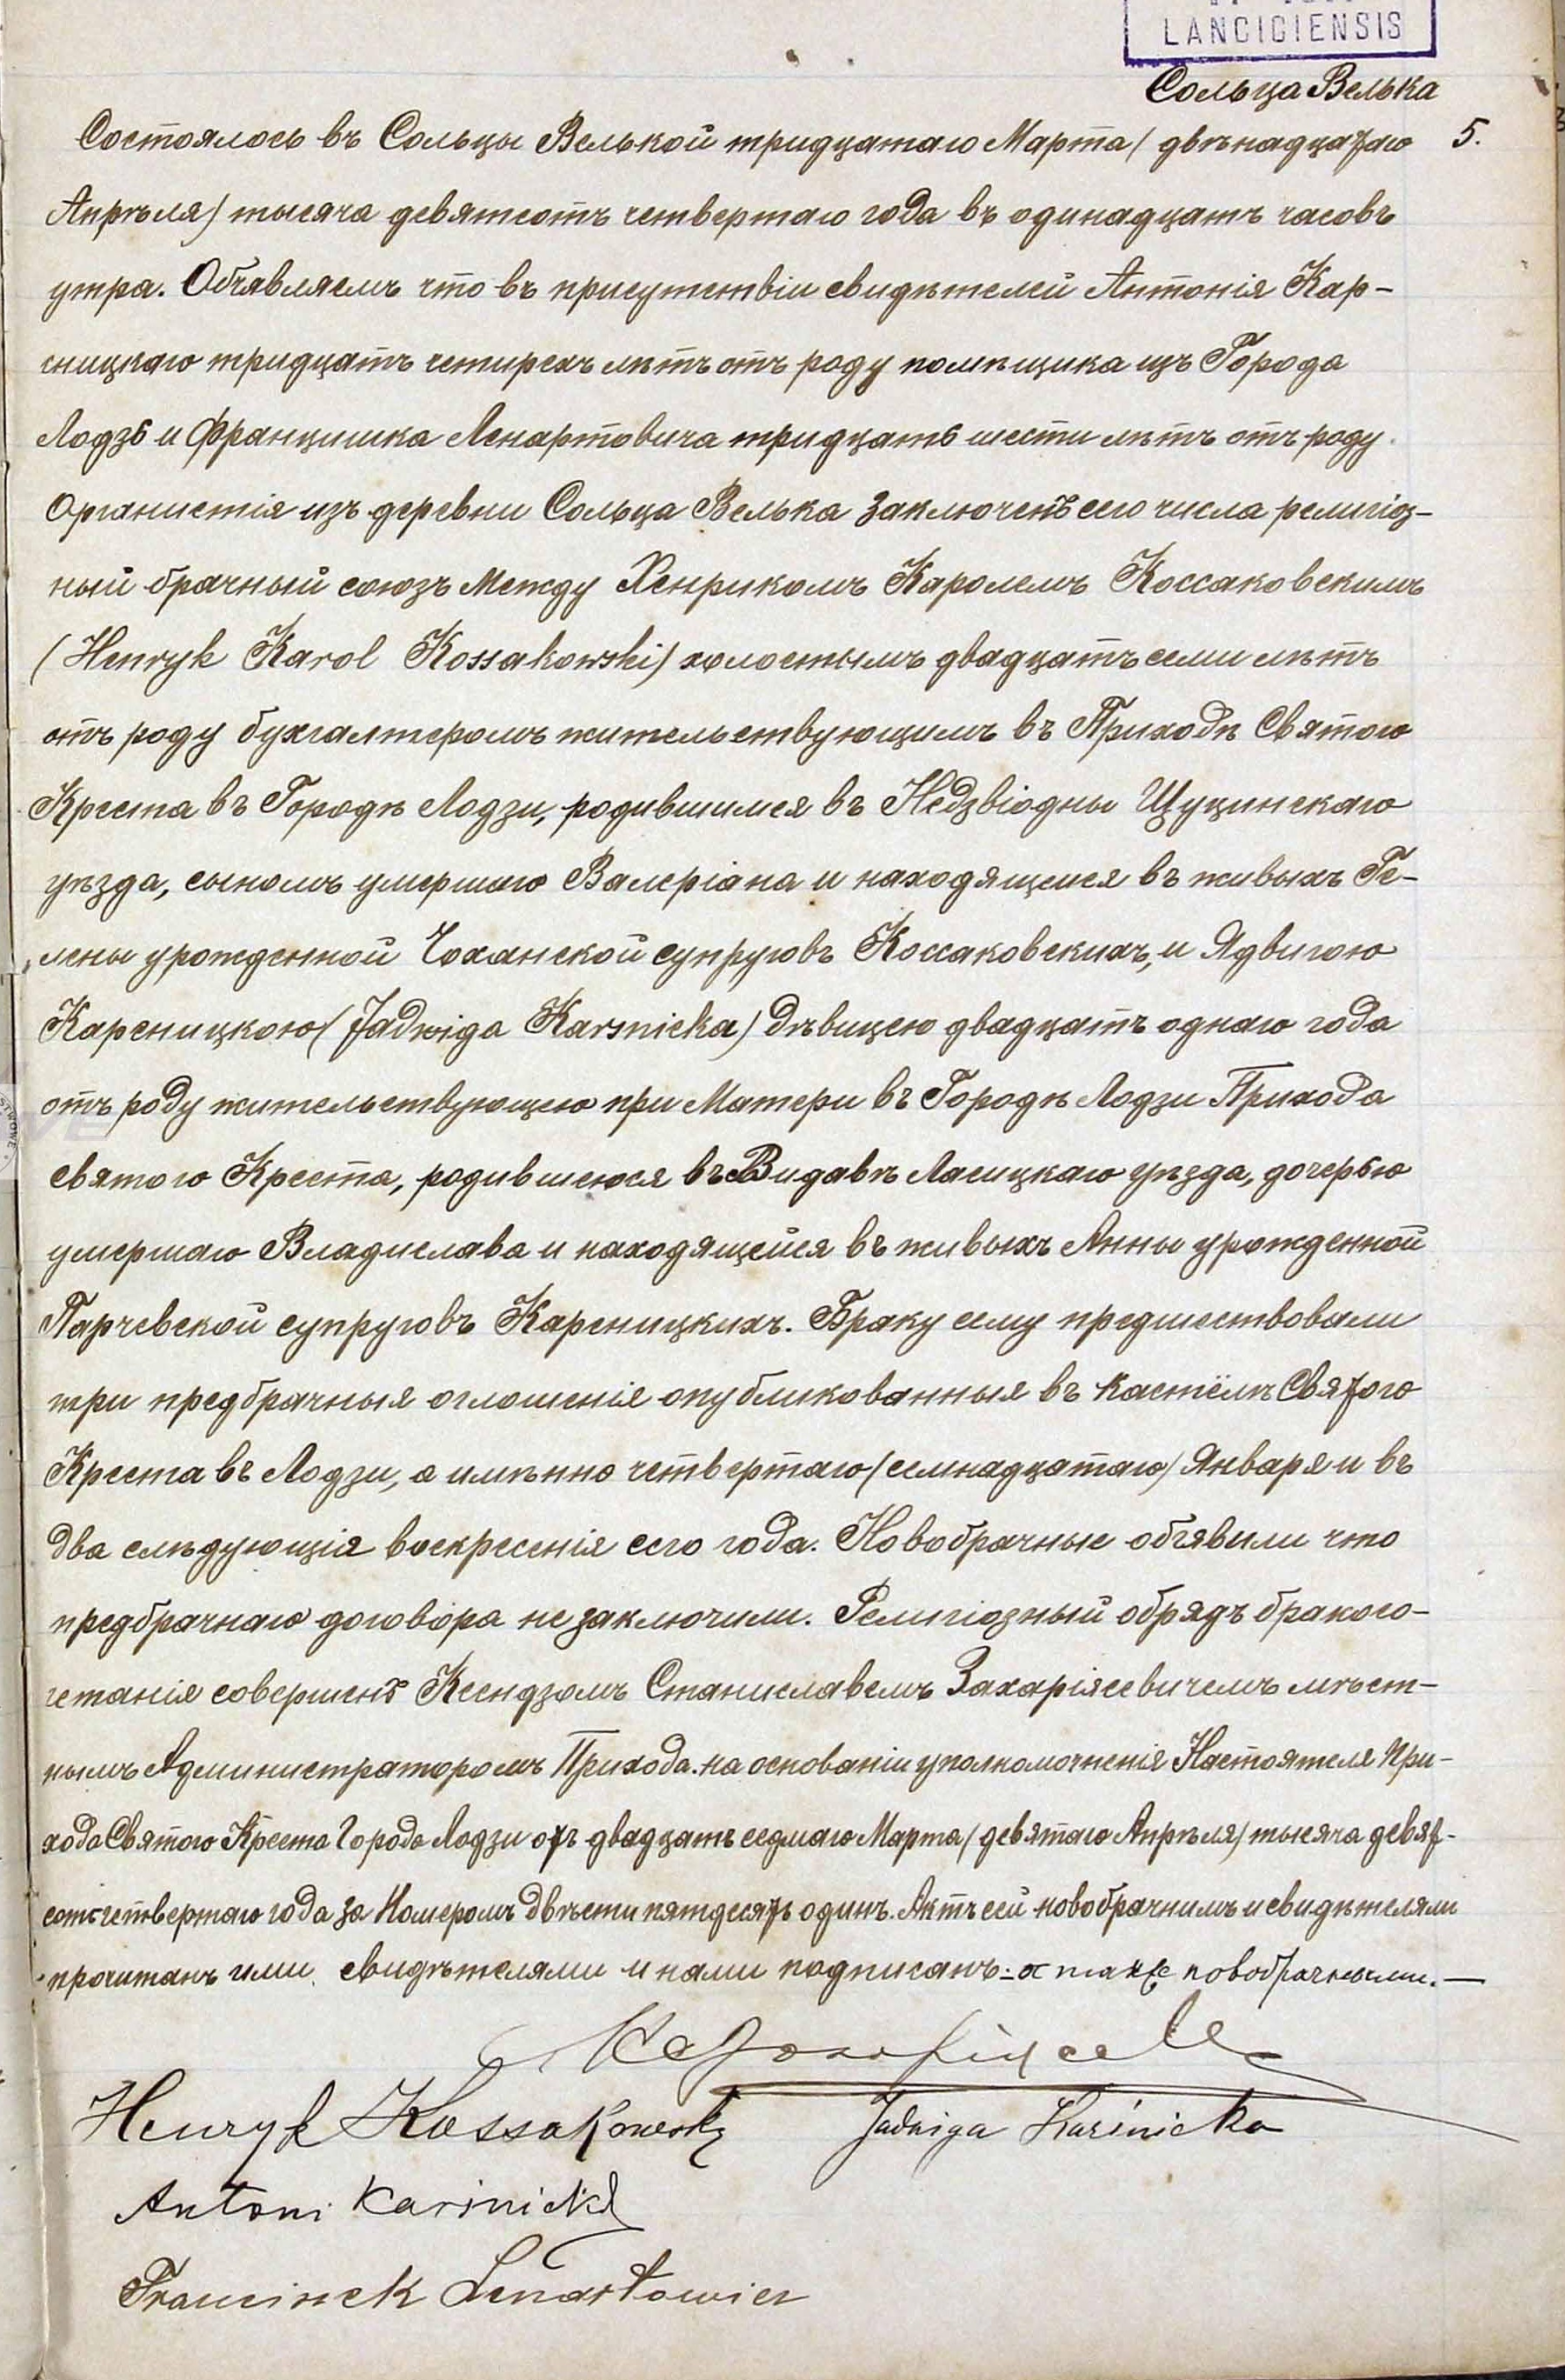 LANCICIENSIS
Сольца Велька
5.
Состоялось въ Сольцы Велькой тридцатаго Марта (двѣнадцатаго
Апрѣля) тысяча девятсотъ четвертаго года въ одинадцать часовъ
утра. Объявляемъ что въ присутствіи свидѣтелей Антонія Кар-
сницкаго тридцать четырехъ лѣтъ отъ роду помѣщика изъ Города
Лодзь и Францишка Ленартовича тридцать шести лѣтъ отъ роду
Органистія изъ деревни Сольца Велька заключенъ сего числа религіоз-
ный брачный союзъ между Хенрикомъ Каролемъ Коссаковскимъ
(Henryk Karol Kossakowski) холостымъ двадцать семи лѣтъ
отъ роду бухгалтеромъ жительствующимъ въ Приходѣ Святого
Креста въ Городѣ Лодзи, родившимся въ Недзвіодны Щуцинскаго
уѣзда, сыномъ умершаго Валеріана и находящейся въ живыхъ Ге-
лены урожденной Чоханской супруговъ Коссаковскихъ, и Ядвигою
Карсницкою (Jadwiga Karsnicka) дѣвицею двадцать однаго года
отъ роду жительствующею при Матери въ Городѣ Лодзи Прихода
святого Креста, родившеюся въ Видавѣ Ласицкаго уѣзда, дочерью
умершаго Владислава и находящейся въ живыхъ Анны урожденной
Парчевской супруговъ Карсницкихъ. Браку сему предшествовали
три предбрачныя оглошенія опубликованныя въ Кастёлѣ Святого
Креста въ Лодзи, а имѣнно четвертаго (семнадцатаго) Января и въ
два слѣдующія воскресенія сего года. Новобрачные объявили что
предбрачнаго договора не заключили. Религіозный обрядъ бракосо-
четанія совершенъ Ксендзомъ Станиславемъ Захаріясевичемъ мѣст-
нымъ Администраторомъ Прихода на основаніи уполномочненія Настоятеля При-
хода Святого Креста Города Лодзи отъ двадцать седмаго Марта (девятаго Апрѣля) тысяча девят-
сотъ четвертаго года за Номеромъ двѣсти пятдесятъ одинъ. Актъ сей новобрачнымъ и свидѣтелями
прочитанъ ими свидѣтелями и нами подписанъ.- а также новобрачными.—
Henryk Kossakowski Jadwiga Karśnicka
Antoni Karśnicki
Franciszek Lenartowicz